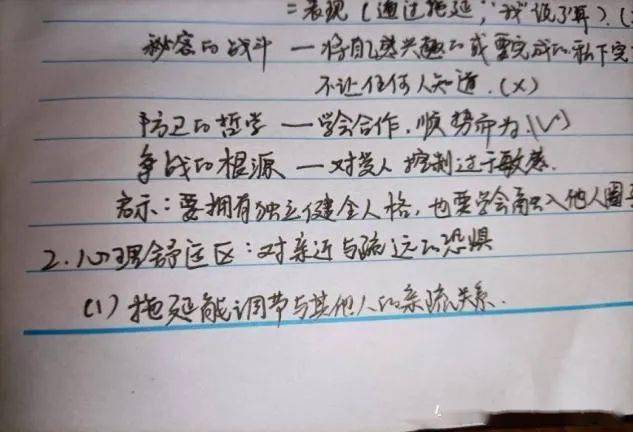 =表现(通过拖延,"我说了算).(
秘密的战斗—将自己感兴趣的或要完成的私下完
不让任何人知道.(×)
防卫的哲学—学会合作,顺势而为.(√)
争战的根源—对受人控制过于敏感.
启示:要拥有独立健全人格,也要学会融入他人圈子
2.心理舒适区:对亲近与疏远的恐惧
(1)拖延能调节与其他人的亲疏关系.